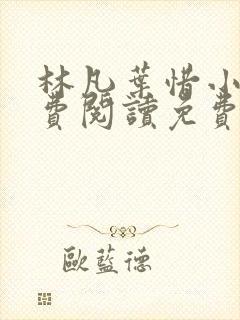 林凡葉惜小
費閱讀免費
歐藍德